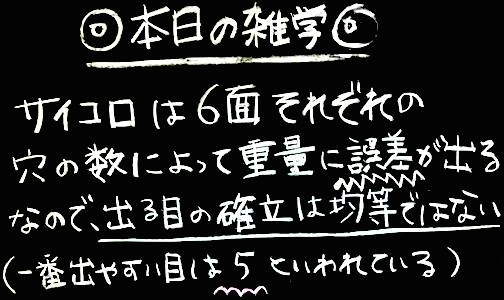 ◎本日の雑学◎
サイコロは6面それぞれの
穴の数によって重量に誤差が出る
なので、出る目の確立は均等ではない
(一番出やすい目は5といわれている)